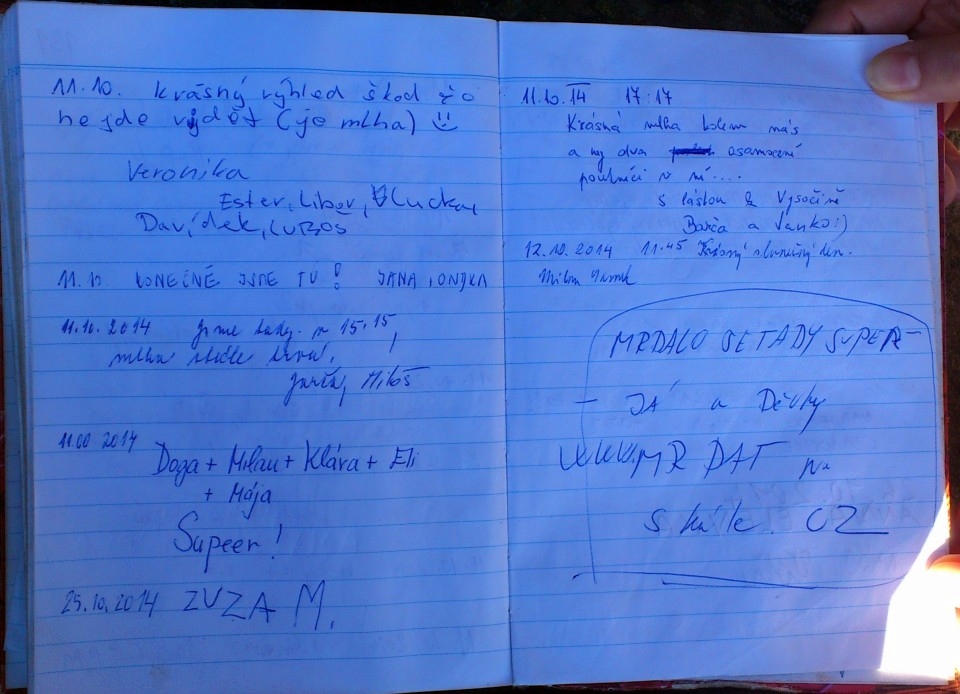 11.10. krásný výhled škod že
nejde vidět (je mlha) :)
Veronika
Ester, Libor, Lucka,
Davídek, LUBOS
11.10. KONEČNĚ JSME TU! JANA, ONJKA
11.10.2014 Jsme tady v 15,15,
mlha stále trvá!
Jarka, Miloš
11.00 2014
Doga + Milan + Klára + Eli
+ Mája
Supeer!
25.10.2014 ZUZA M.
11.10.14 17:17
Krásná mlha kolem nás
a my dva osamocení
poutníci v ní....
s láskou k Vysočině
Barča a Janko :)
12.10.2014 11.45 Krásný slunečný den.
Milan
MRDALO SE TADY SUPER
- JÁ a Děvky
WWW.MRDAT na
skále. CZ